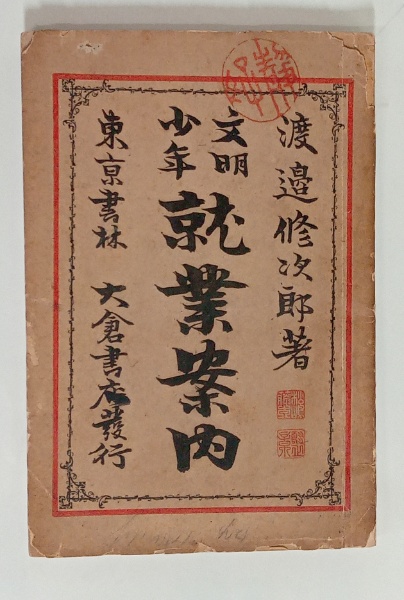 渡邉修次郎著
文明
少年
就業案内
東京書林 大倉書店發行